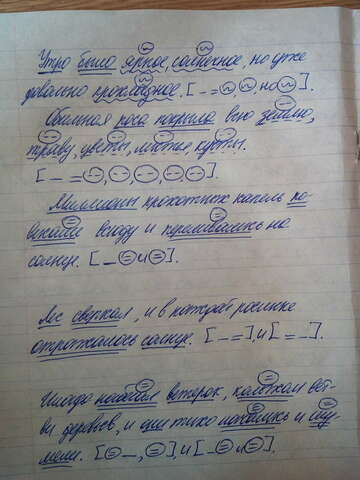 Утро было яркое, солнечное, но уже
довольно прохладное. [ – = , но ].
Обильная роса покрыла всю землю,
траву, цветы, листья, кусты.
[ – = , , , , ].
Миллионы прохладных капель по-
висли всюду и переливались на
солнце. [ – = и = ].
Лес сверкал, и в каждой росинке
отражалось солнце. [ – = ] и [ = – ].
Иногда набегал ветерок, колыхал вет-
ви деревьев, и они тихо
[ = – , = ] и [ – = и = ].